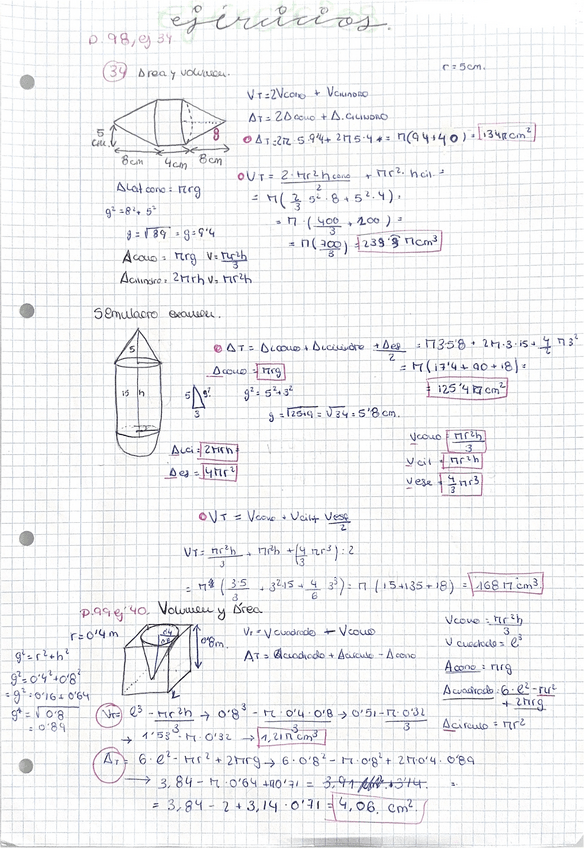 ejercicios.
P. 98, ej 34
34 Area y volumen.
r = 5cm.
VT = 2Vcono + Vcilindro
AT = 2Acono + A.cilindro
5 cm.
8
8cm 4cm 8cm
AT = 2π·5·9'4 + 2π5·4 = π(94+40) = 134π cm²
ALat cono = πrg
g² = 8² + 5²
g = √89 = g = 9'4
Acono = πrg V = πr²h/3
Acilindro = 2πrh V = πr²h
VT = 2·πr²h cono/2 + πr²·hcil =
= π(2/3 5²·8 + 5²·4) =
= π·(400/3 + 100) =
= π(700/3) = 239'9 π cm³
Simulacro examen.
5
15 h
AT = Acono + Acilindro + Aesf/2 = π3·5'8 + 2π·3·15 + 4/2 π 3²
Acono = πrg
= π(17'4 + 90 + 18) =
= 125'4 π cm²
5 g² 3
g² = 5² + 3²
g = √25+9 = √34 = 5'8 cm.
Acil = 2πrh
Aesf = 4πr²
Vcono = πr²h/3
Vcil = πr²h
Vesf = 4/3 πr³
VT = Vcono + Vcil + Vesf/2
VT = πr²h/3 + πr²h + (4/3 πr³) : 2
= π (3·5/3 + 3²·15 + 4/6 3³) = π (15+135+18) = 168 π cm³
P. 99, ej 40. Volumen y Area
r = 0'4 m
0'4
0'8
0'8m.
g² = r² + h²
g² = 0'4² + 0'8²
= g² = 0'16 + 0'64
g = √0'8
= 0'89
VT = Vcuadrado - Vcono
AT = Acuadrado + Acirculo - Acono
Vcono = πr²h/3
Vcuadrado = l³
Acono = πrg
Acuadrado: 6·l² - πr² + 2πrg
Acirculo = πr²
VT = l³ - πr²h/3 → 0'8³ - π·0'4·0'8 → 0'51 - π·0'32/3
→ 1'53 - π·0'32 → 1,21π cm³
AT = 6·l² - πr² + 2πrg → 6·0'8² - π·0'8² + 2π0'4·0'89
→ 3,84 - π·0'64 + π0'71 =
= 3,84 - 2 + 3,14·0'71 = 4,06. cm²